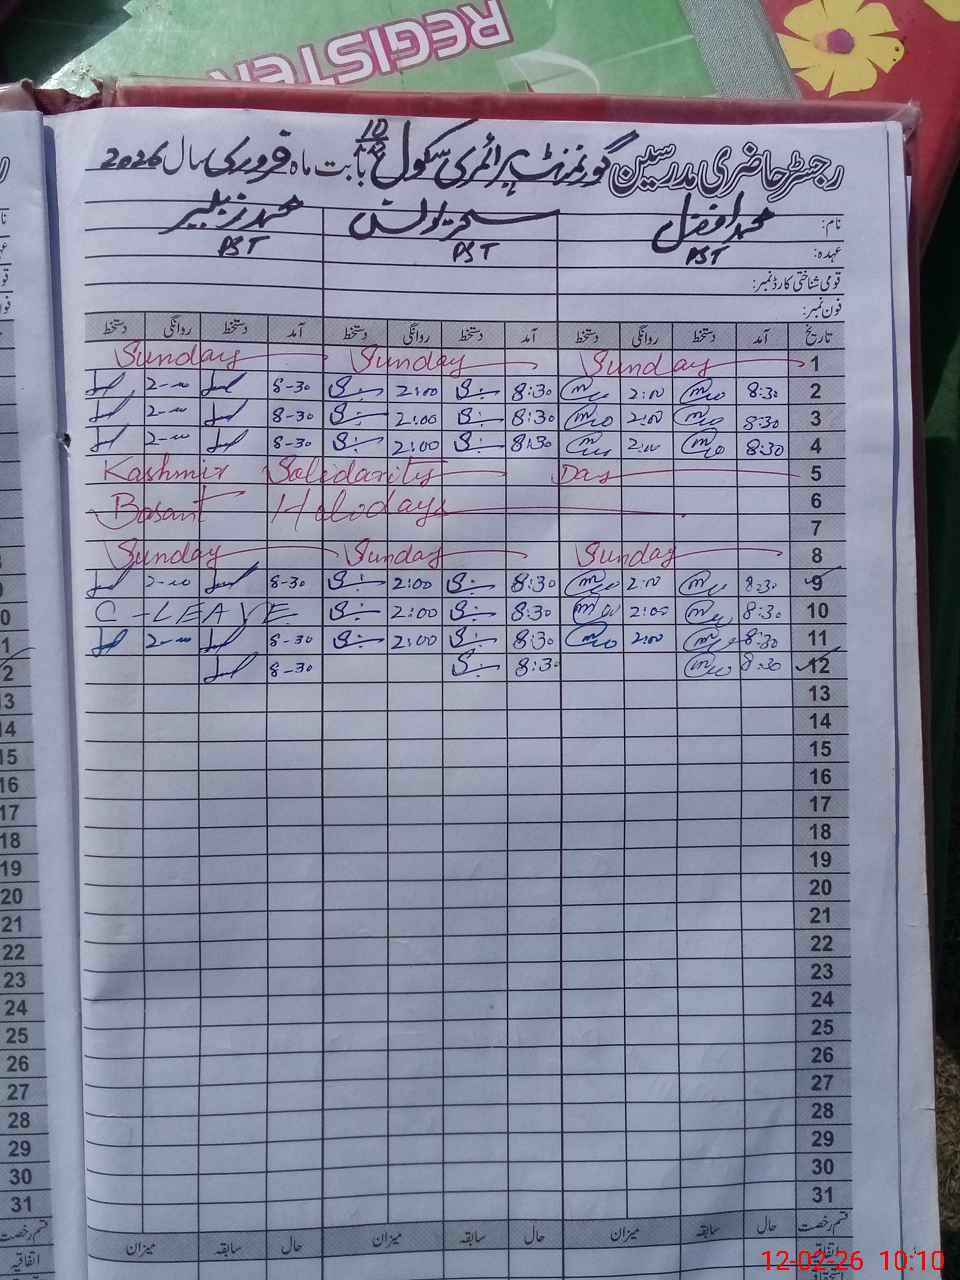 REGISTER
رجسٹر حاضری مدرسین گورنمنٹ پرائمری سکول 10 بابت ماہ فروری سال 2026
نام: محمد افضل محمد زبیر
عہدہ: PST PST PST
قومی شناختی کارڈ نمبر:
فون نمبر:
تاریخ آمد دستخط روانگی دستخط آمد دستخط روانگی دستخط آمد دستخط روانگی دستخط
1 Sunday Sunday Sunday
2 8:30 2:00 8:30 2:00 8-30 2-00
3 8:30 2:00 8:30 2:00 8-30 2-00
4 8:30 2:00 8:30 2:00 8-30 2-00
5 Kashmir Solidarity Day
6 Basant Holodays
7
8 Sunday Sunday Sunday
9 8:30 2:00 8:30 2:00 8-30 2-00
10 8:30 2:00 8:30 2:00 C-LEAVE
11 8:30 2:00 8:30 2:00 8-30 2-00
12 8:30 8:30 8-30
13
14
15
16
17
18
19
20
21
22
23
24
25
26
27
28
29
30
31
قسم رخصت حال سابقہ میزان حال سابقہ میزان حال سابقہ میزان
اتفاقیہ
12-02-26 10:10